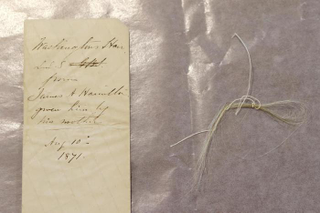 Washington's Hair
from
James A Hamilton
given him by
his mother
Aug 10th
1871